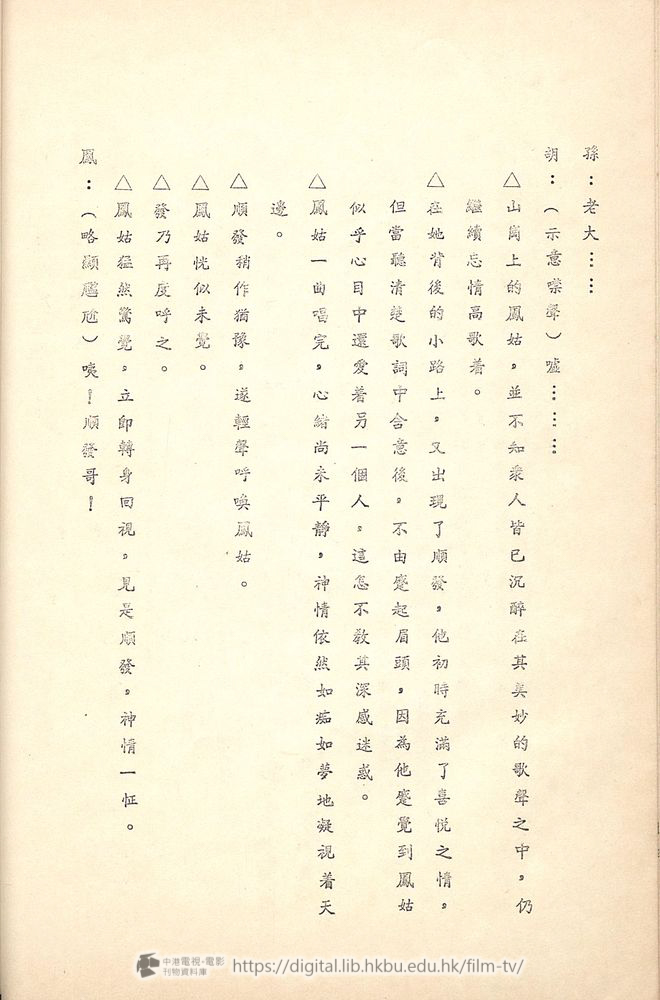 孫：老大……
胡：（示意噤聲）噓………
△山崗上的鳳姑，並不知衆人皆已沉醉在其美妙的歌聲之中，仍
繼續忘情高歌着。
△在她背後的小路上，又出現了順發，他初時充滿了喜悅之情，
但當聽清楚歌詞中含意後，不由蹙起眉頭，因為他蹙覺到鳳姑
似乎心目中還愛着另一個人，這怎不教其深感迷惑。
△鳳姑一曲唱完，心緒尚未平靜，神情依然如痴如夢地凝視着天
邊。
△順發稍作猶豫，遂輕聲呼喚鳳姑。
△鳳姑恍似未覺。
△發乃再度呼之。
△鳳姑猛然驚覺，立即轉身回視，見是順發，神情一怔。
鳳：（略顯尷尬）唉！順發哥！
中港電視·電影
刊物資料庫
https://digital.lib.hkbu.edu.hk/film-tv/